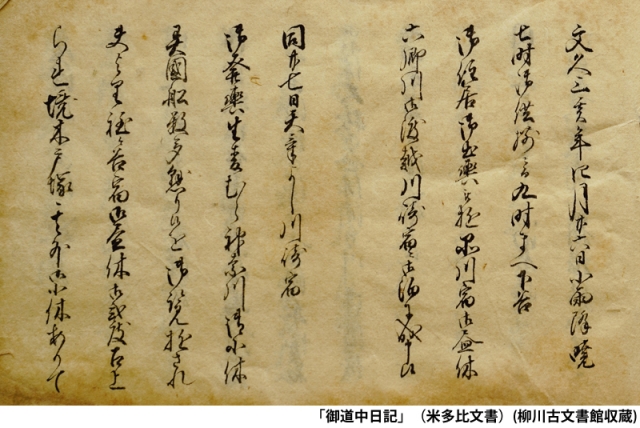 文久三亥年四月廿六日小雨降暁
七時御供揃ニ而九時まへ下谷
御住居御出輿被遊品川宿御昼休
六郷川御渡越川崎宿御泊
同廿七日天気よし川崎宿
御発輿生麦むら神奈川御小休
異国船数多懸り候を御覧遊され
夫より程ヶ谷宿御昼休
られ境木戸塚其外御小休ありて
「御道中日記」（米多比文書）(柳川古文書館収蔵)